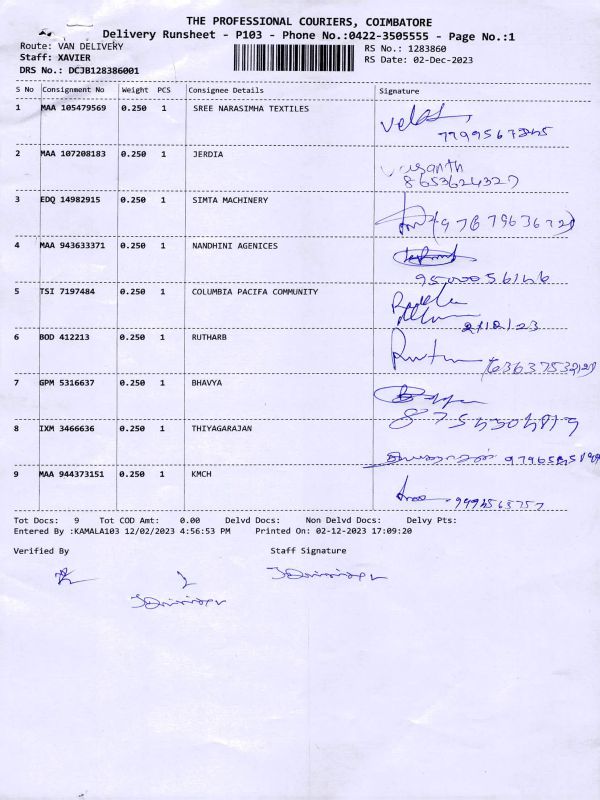 THE PROFESSIONAL COURIERS, COIMBATORE
Delivery Runsheet - P103 - Phone No.:0422-3505555 - Page No.:1
Route: VAN DELIVERY RS No.: 1283860
Staff: XAVIER RS Date: 02-Dec-2023
DRS No.: DCJB128386001
S No Consignment No Weight PCS Consignee Details Signature
1 MAA 105479569 0.250 1 SREE NARASIMHA TEXTILES
2 MAA 107208183 0.250 1 JERDIA
8653624327
3 EDQ 14982915 0.250 1 SIMTA MACHINERY
4 MAA 943633371 0.250 1 NANDHINI AGENICES
5 TSI 7197484 0.250 1 COLUMBIA PACIFA COMMUNITY
2/12/23
6 BOD 412213 0.250 1 RUTHARB
7 GPM 5316637 0.250 1 BHAVYA
8 IXM 3466636 0.250 1 THIYAGARAJAN
9 MAA 944373151 0.250 1 KMCH
Tot Docs: 9 Tot COD Amt: 0.00 Delvd Docs: Non Delvd Docs: Delvy Pts:
Entered By :KAMALA103 12/02/2023 4:56:53 PM Printed On: 02-12-2023 17:09:20
Verified By Staff Signature